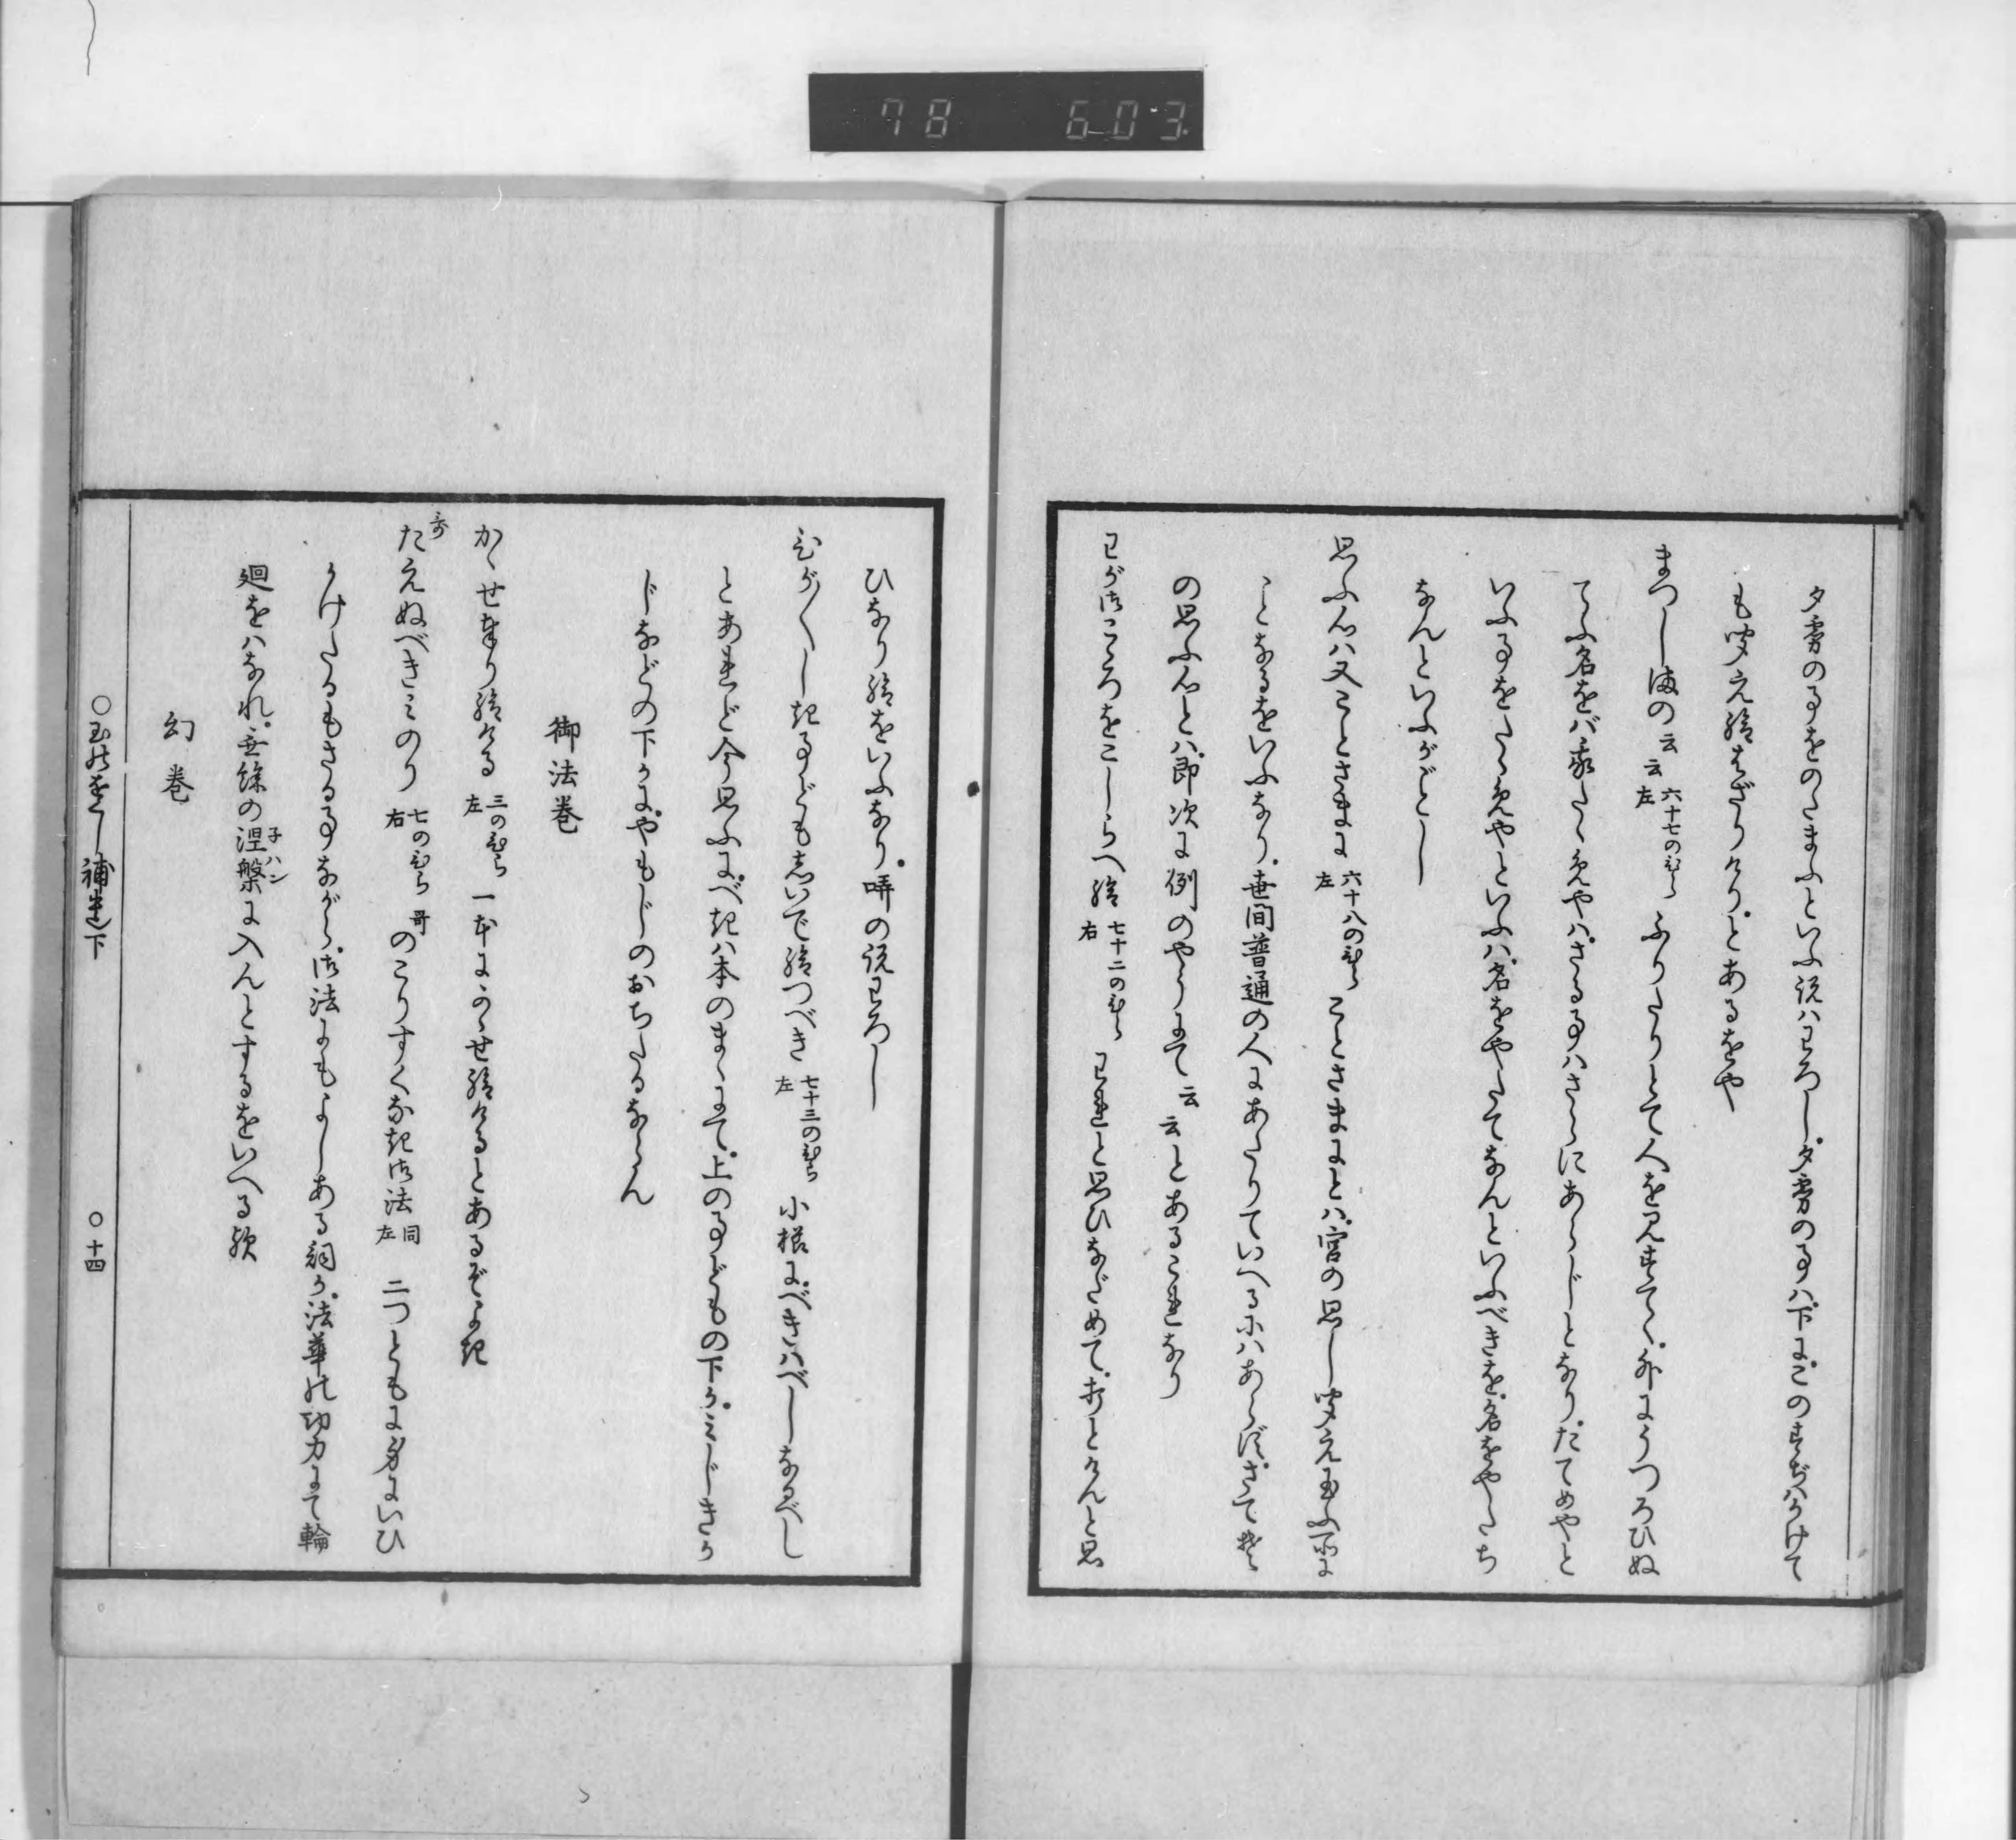 78 603
夕霧の事をのたまふといふ説ハわろし。夕霧の事ハ、下に、このすぢハかけて
も聞え給はざりけり。とあるをや
まつしまの云云 六十七のひら左 ふりたりとて人を見すてゝ、外にうつろひぬ
てふ名をバ承たゝめや、ハ、さる事ハさらにあらじとなり。たてめやと
いふ事をたゝめやといふハ、名をやたてなんといふべきを、名をやたち
なんといふがごとし
思ふ心ハ又ことさまに 六十八のひら左 ことさまにとハ、宮の思し聞え玉ふ所に
ことなるをいふなり。世間普通の人にあたりていへるにハあらず。さて
の思ふ心とハ、即次に例のやうにて云云とあるこれなり
わが御こゝろをこしらへ給 七十二のひら右 われと思ひなだめて、おとゝけんと思
ひなり給をいふなり。哢の説わろし
むがむがし記事どもおいで給つべき 七十三のひら左 小櫛に、べきハべしなるべし
とあれど今思ふに、べきハ本のまゝにて、上の事どもの下か、みじきか
じなどの下かに、やもじのおちたるならん
御法巻
かゝせ奉り給ける 三のひら左 一本にかゝせ給けるとあるぞよき
哥 たえぬべきみのり 七のひら右 哥 のこりすくなき御法 同左 二つともに身にいひ
かけたるもさる事ながら、御法にもよしある詞か。法華の功力にて輪
廻をハなれ。無餘の涅槃子ハンに入んとするをいへる歟
幻巻
○玉のをぐし補遺下 ○十四